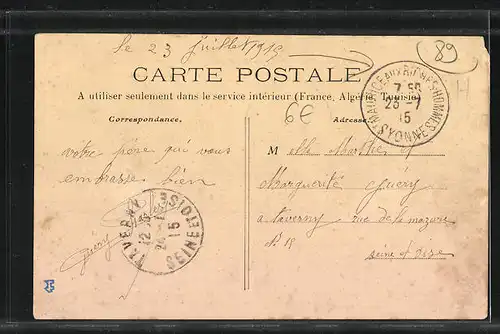 le 23 juillet 1915
89
CARTE POSTALE
A utiliser seulement dans le service intérieur (France, Algérie, Tunisie)
6€
Correspondance. Adresse.
ST MAURICE AUX RICHES HOMMES YONNE
7 50
23 -7
15
votre père qui vous
embrasse bien
Guéry
M elle Marthe et
Marguerite Guéry
a taverny rue de la mazure
N° 15
seine et oise
TAVERNY SEINE-ET-OISE
12
24
15